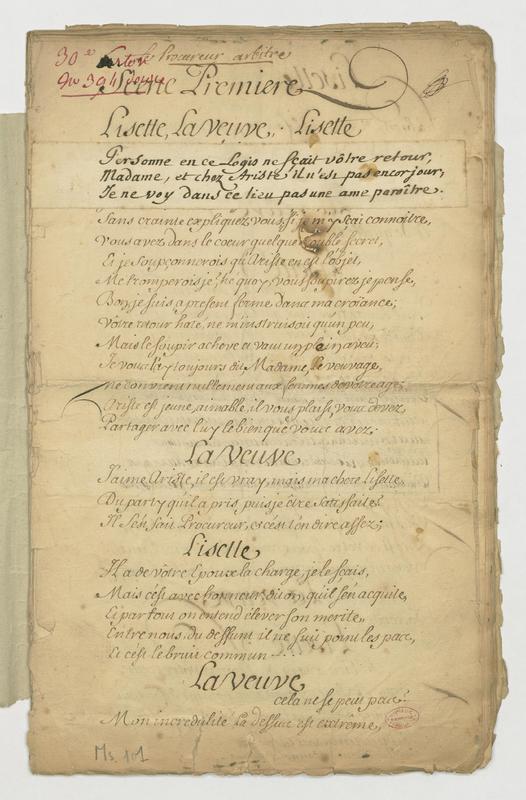 30e
Le Procureur arbitre
Scene Premiere
Lisette, La Veuve, . Lisette
Personne en ce Logis ne sçait vôtre retour,
Madame, et chez Ariste il n'est pas encor jour;
Je ne voy dans ce lieu pas une ame parôitre.
Sans crainte expliquez vous, si je m'y sçai connoitre,
Vous avez dans le coeur quelque trouble secret,
Et je soupçonnerois qu'Ariste en est l'objet,
Me tromperois je? he quoy, vous soupirez je pense,
Bon, je suis a present ferme dans ma croïance;
Vôtre retour haté, ne m'instruisoit qu'un peu,
Mais le soupir acheve et vaut un plein aveu;
Je vous l'ay toujours dit Madame, le veuvage,
ne convient nullement aux femmes de vôtre age;
Ariste est jeune, aimable, il vous plaist, vous devez,
Partager avec luy le bien que vous avez.
La Veuve
J'aime Ariste, il est vray, mais ma chere Lisette,
Du party qu'il a pris, puis je être satisfaite?
Il s'est fait Procureur, et c'est t'en dire assez;
Lisette
Il a de vôtre Epoux la charge, je le sçais,
Mais c'est avec honneur, dit on, qu'il s'en acquite,
Et par tout on entend élever son merite,
Entre nous, du deffunt il ne suit point les pas,
Et c'est le bruit commun ...
La Veuve
cela ne se peut pas.
Mon incredulité la dessus est extrême,
Ms. 101